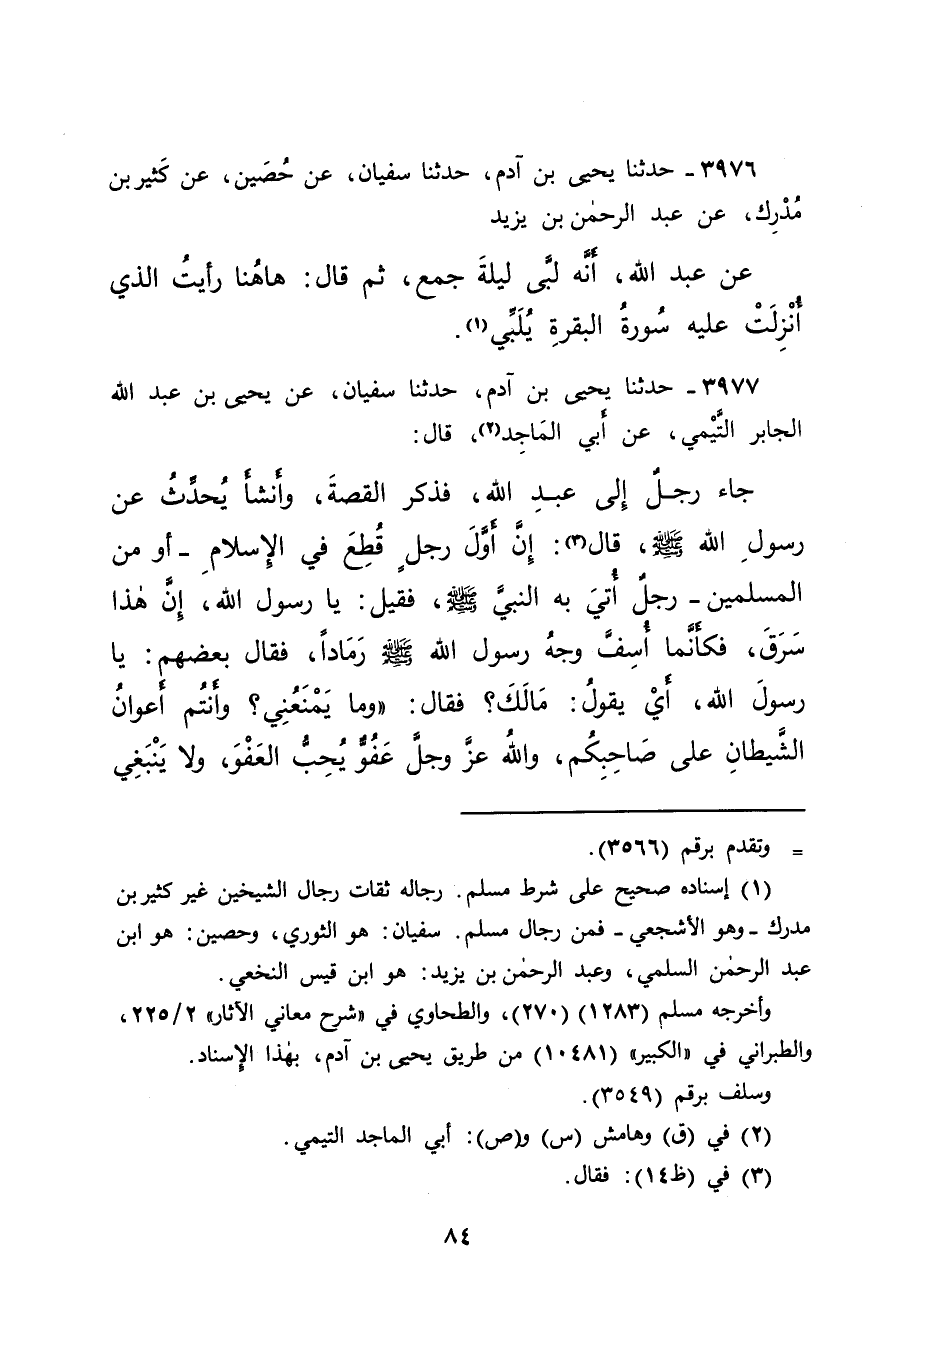 ٣٩٧٦ـ حدثنا يحيى بن آدم، حدثنا سفيان، عن حُصَين، عن كَثير بن
مُدْرِك، عن عبد الرحمٰن بن يزيد
عن عبد الله، أَنَّه لَبَّى ليلةَ جمع، ثم قال: هاهُنا رأيتُ الذي
أُنْزِلَتْ عليه سُورةُ البقرةِ يُلَبِّي(١).
٣٩٧٧ـ حدثنا يحيى بن آدم، حدثنا سفيان، عن يحيى بن عبد الله
الجابر التَّيْمي، عن أَبي المَاجِد(٢)، قال:
جاء رجلٌ إلى عبدِ الله، فذكر القصةَ، وأَنشأَ يُحدِّثُ عن
رسولِ الله ﷺ، قال(٣): إِنَّ أَوَّلَ رجلٍ قُطِعَ في الإِسلامِ ـ أو من
المسلمين ـ رجلٌ أُتيَ به النبيَّ ﷺ، فقيل: يا رسول الله، إِنَّ هٰذا
سَرَقَ، فكأَنَّما أُسِفَّ وجهُ رسول الله ﷺ رَمَاداً، فقال بعضهم: يا
رسولَ الله، أَيْ يقولُ: مَالَكَ؟ فقال: «وما يَمْنَعُنِي؟ وأَنتُم أَعوانُ
الشَّيطانِ على صَاحِبِكُم، واللهُ عزَّ وجلَّ عَفُوٌّ يُحِبُّ العَفْوَ، ولا يَنْبَغِي
= وتقدم برقم (٣٥٦٦).
(١) إسناده صحيح على شرط مسلم. رجاله ثقات رجال الشيخين غير كثير بن
مدرك ـ وهو الأشجعي ـ فمن رجال مسلم. سفيان: هو الثوري، وحصين: هو ابن
عبد الرحمٰن السلمي، وعبد الرحمٰن بن يزيد: هو ابن قيس النخعي.
وأخرجه مسلم (١٢٨٣) (٢٧٠)، والطحاوي في «شرح معاني الآثار» ٢/ ٢٢٥،
والطبراني في «الكبير» (١٠٤٨١) من طريق يحيى بن آدم، بهٰذا الإِسناد.
وسلف برقم (٣٥٤٩).
(٢) في (ق) وهامش (س) و(ص): أبي الماجد التيمي.
(٣) في (ظ١٤): فقال.
٨٤